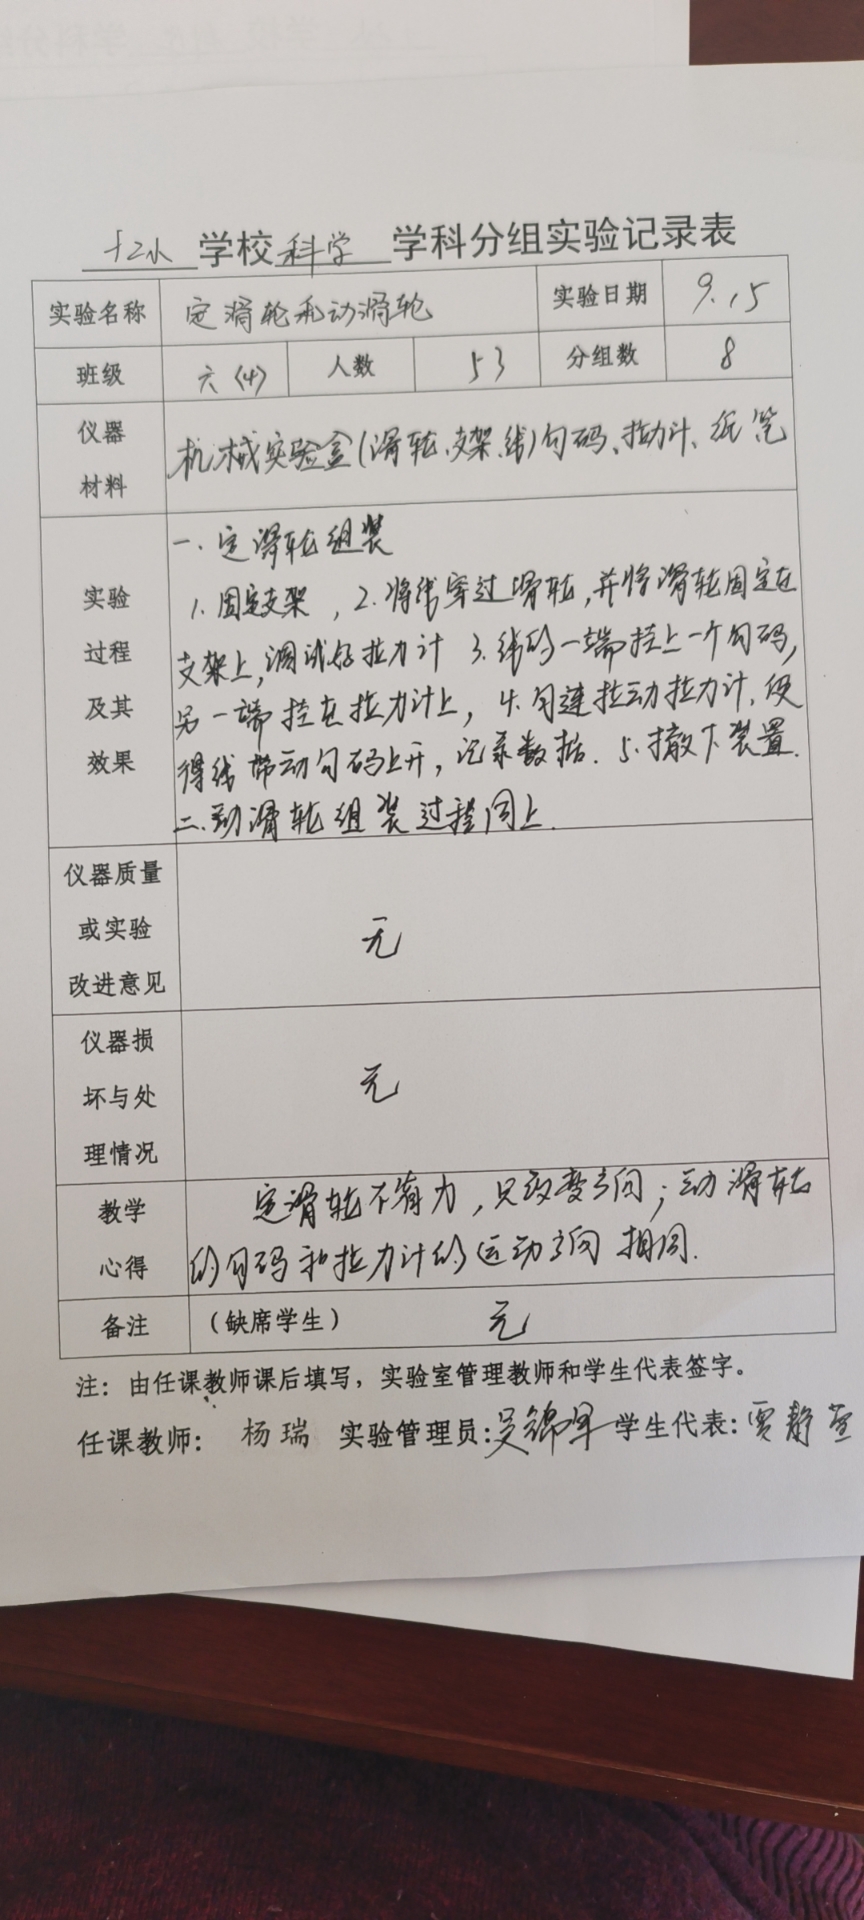 学校 科学 学科分组实验记录表
实验名称 定滑轮和动滑轮 实验日期 9.15
班级 六(4) 人数 53 分组数 8
仪器材料 机械实验盒(滑轮、支架、线)勾码、拉力计、纸笔
实验过程及其效果
一、定滑轮组装
1.固定支架，2.将线穿过滑轮，并将滑轮固定在
支架上，调试好拉力计 3.线的一端挂上一个勾码，
另一端挂在拉力计上，4.匀速拉动拉力计，使
得线带动勾码上升，记录数据. 5.撤下装置.
二.动滑轮组装过程同上.
仪器质量或实验改进意见 无
仪器损坏与处理情况 无
教学心得
定滑轮不省力，只改变方向；动滑轮
的勾码和拉力计的运动方向相同.
备注 (缺席学生) 无
注：由任课教师课后填写，实验室管理教师和学生代表签字。
任课教师： 杨瑞 实验管理员: 学生代表: 贾静